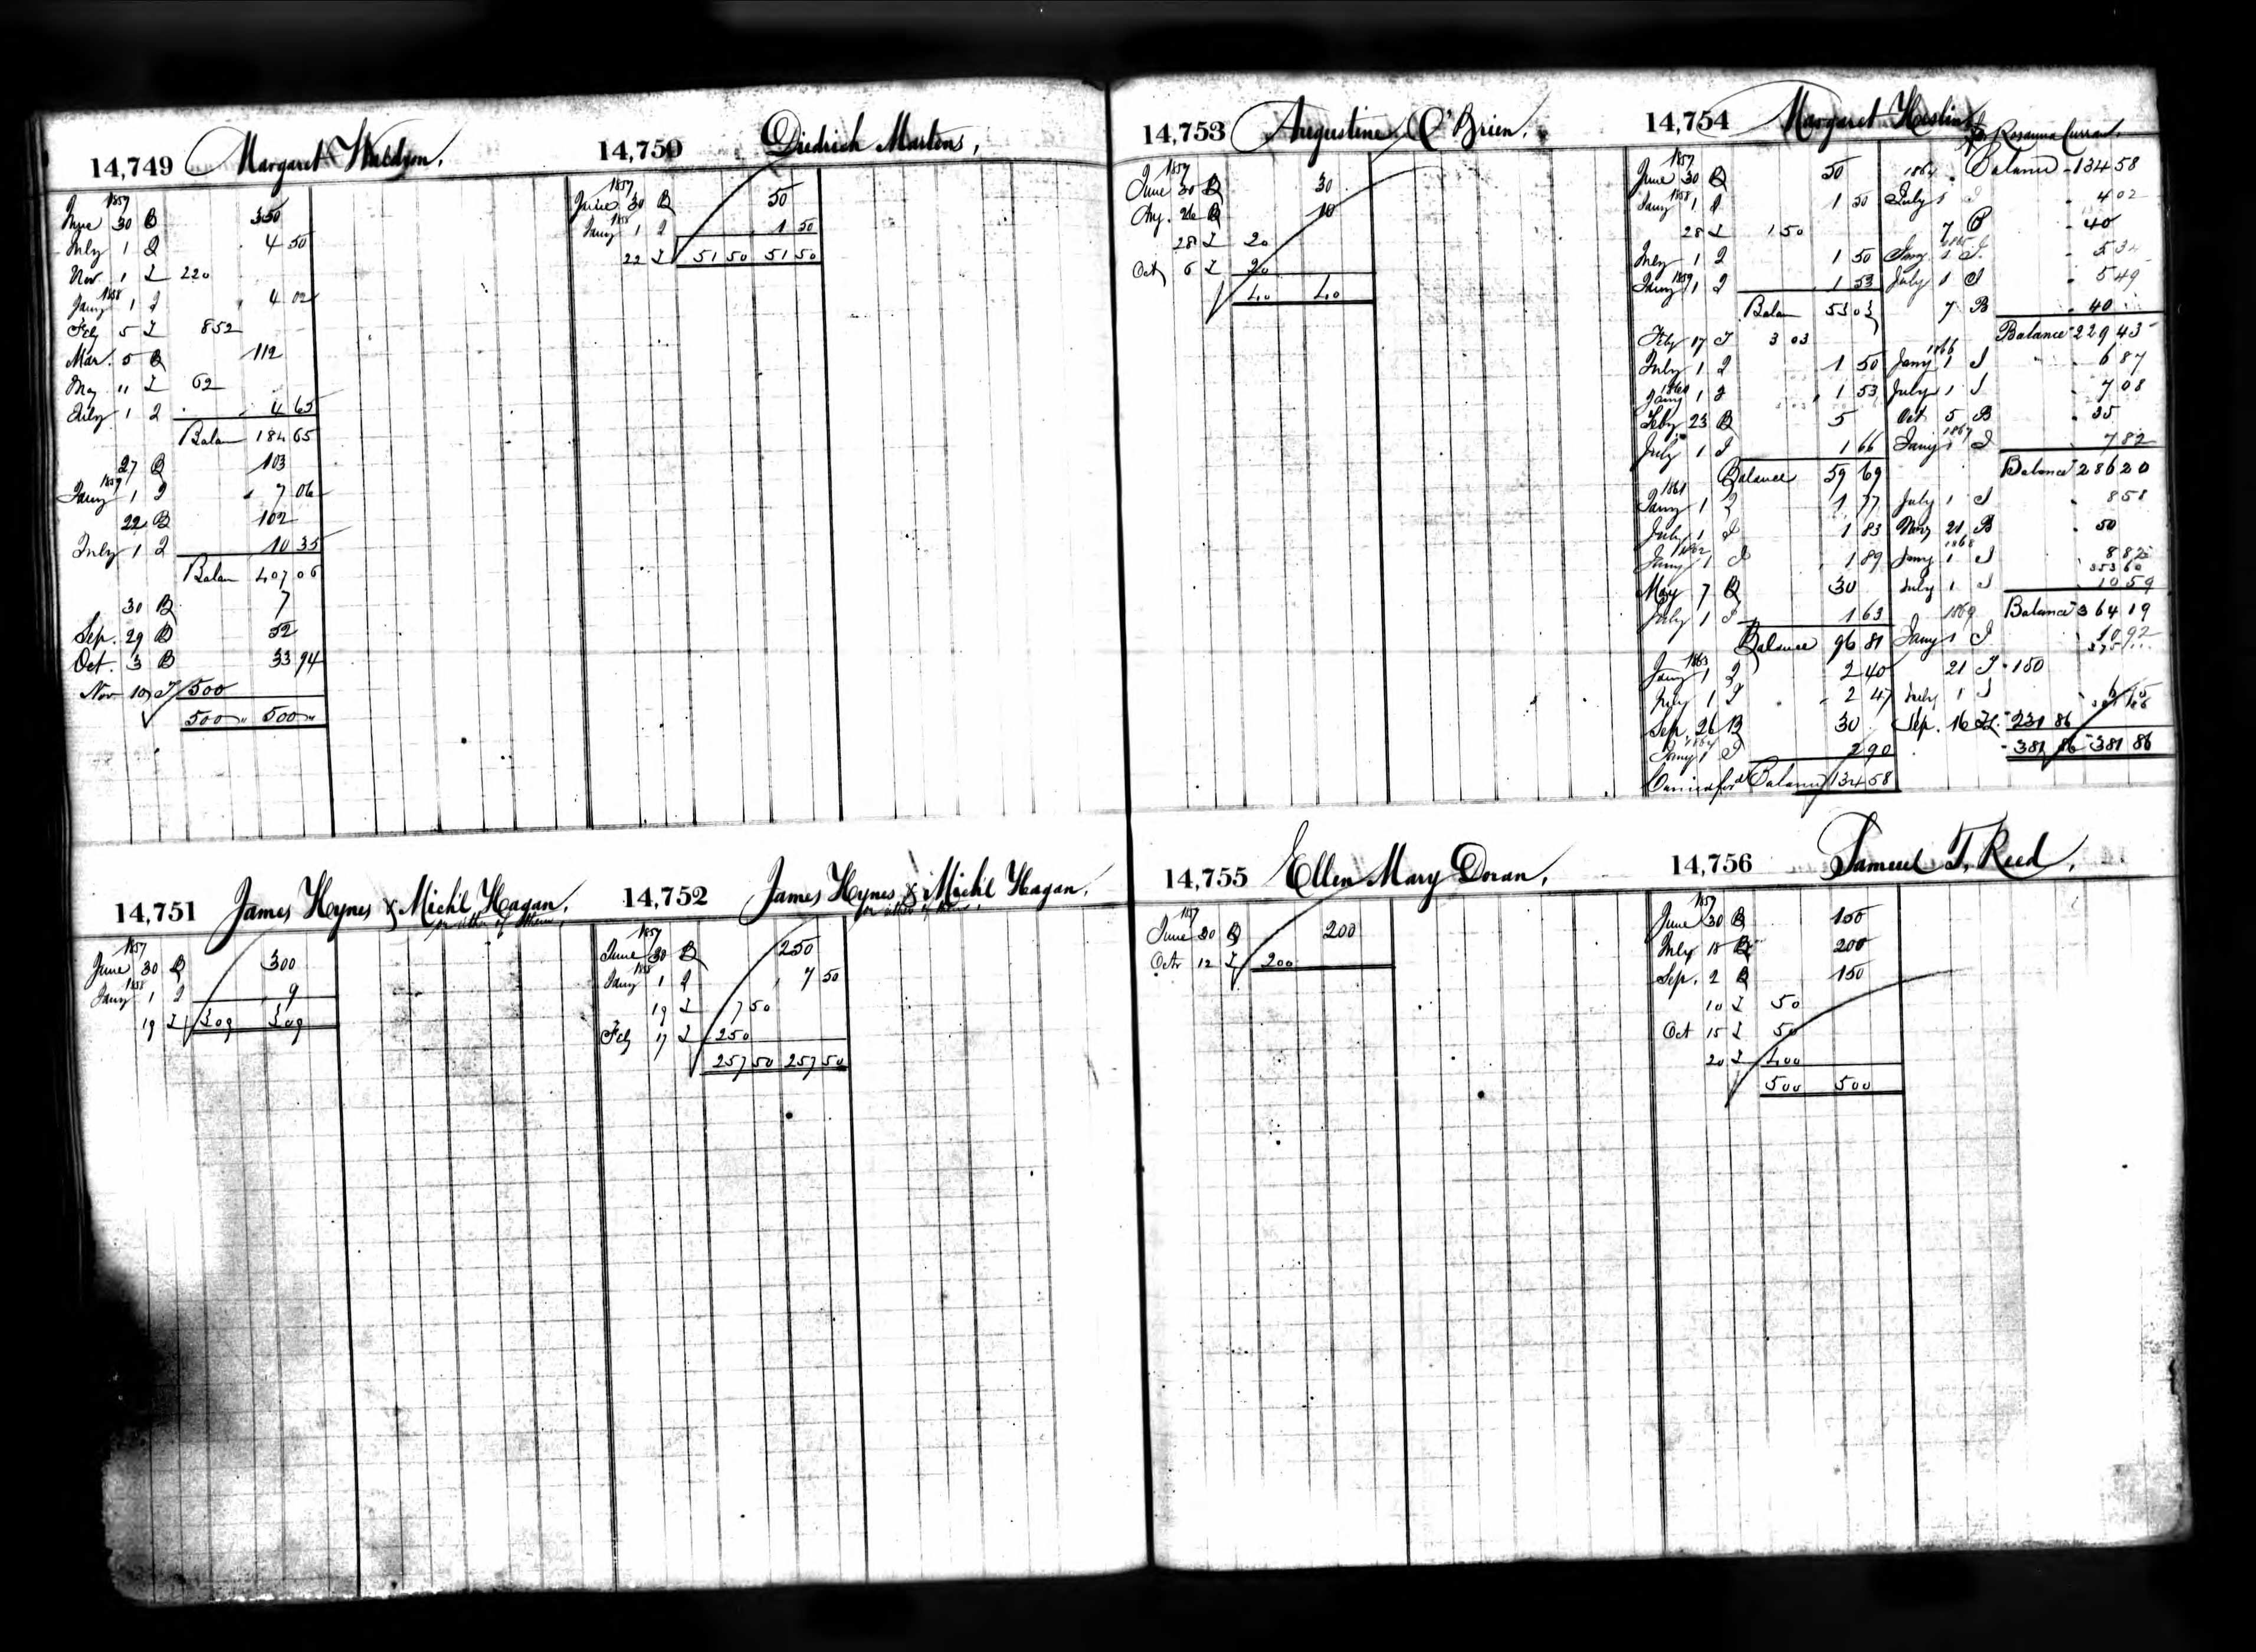 14,749 Margaret Waldron.
1857
June 30 B 350
July 1 I 4 50
Nov. 1 I 220
1858
Jany 1 I 4 02
Feby 5 I 852
Mar. 5 B 112
May 11 I 62
July 1 I 4 65
Balan 184 65
27 B 103
1859
Jany 1 I 7 06
22 B 102
July 1 I 10 35
Balan 407 06
30 B 7
Sep. 29 B 52
Oct. 3 B 33 94
Nov 10 I 500
500 " 500 "
14,750 Diedrich Martens,
1857
June 30 B 50
1858
Jany 1 I 1 50
22 I 51 50 51 50
14,751 James Hynes & Mich'l Hagan.
or either of them,
1857
June 30 B 300
1858
Jany 1 I 9
19 I 309 309
14,752 James Hynes & Mich'l Hagan.
or either of them,
1857
June 30 B 250
1858
Jany 1 I 7 50
19 I 7 50
Feby 17 I 250
257 50 257 50
14,753 Augustine O'Brien.
1857
June 30 B 30
Aug. 26 B 10
28 I 20
Oct 6 I 20
40 40
14,754 Margaret Heslin
for Rosanna Curran.
1857
June 30 B 50
1858
Jany 1 I 1 50
28 I 1 50
July 1 I 1 50
1859
Jany 1 I 1 53
Balan 53 03
Feby 17 I 3 03
July 1 I 1 50
1860
Jany 1 I 1 53
Feby 23 B 5
July 1 I 1 66
Balance 59 69
1861
Jany 1 I 1 77
July 1 I 1 83
1862
Jany 1 I 1 89
May 7 B 30
July 1 I 1 63
Balance 96 81
1863
Jany 1 I 2 40
July 1 I 2 47
Sep. 26 B 30
1864
Jany 1 I 2 90
Carried for'd Balance 134 58
1864 Balance 134 58
July 1 I 4 02
7 B 40
1865
Jany 1 I 5 34
July 1 I 5 49
7 B 40
Balance 229 43
1866
Jany 1 I 6 87
July 1 I 7 08
Oct 5 B 35
1867
Jany 1 I 7 82
Balance 286 20
July 1 I 8 58
Nov 21 B 50
1868
Jany 1 I 8 82
353 60
July 1 I 10 59
Balance 364 19
1869
Jany 1 I 10 92
21 I 150
July 1 I
Sep. 16 I 231 86
381 86 381 86
14,755 Ellen Mary Doran,
1857
June 30 B 200
Octr 12 I 200
14,756 Samuel T. Reed,
1857
June 30 B 150
July 18 B 200
Sep. 2 B 150
10 I 50
Oct 15 I 50
20 I 400
500 500